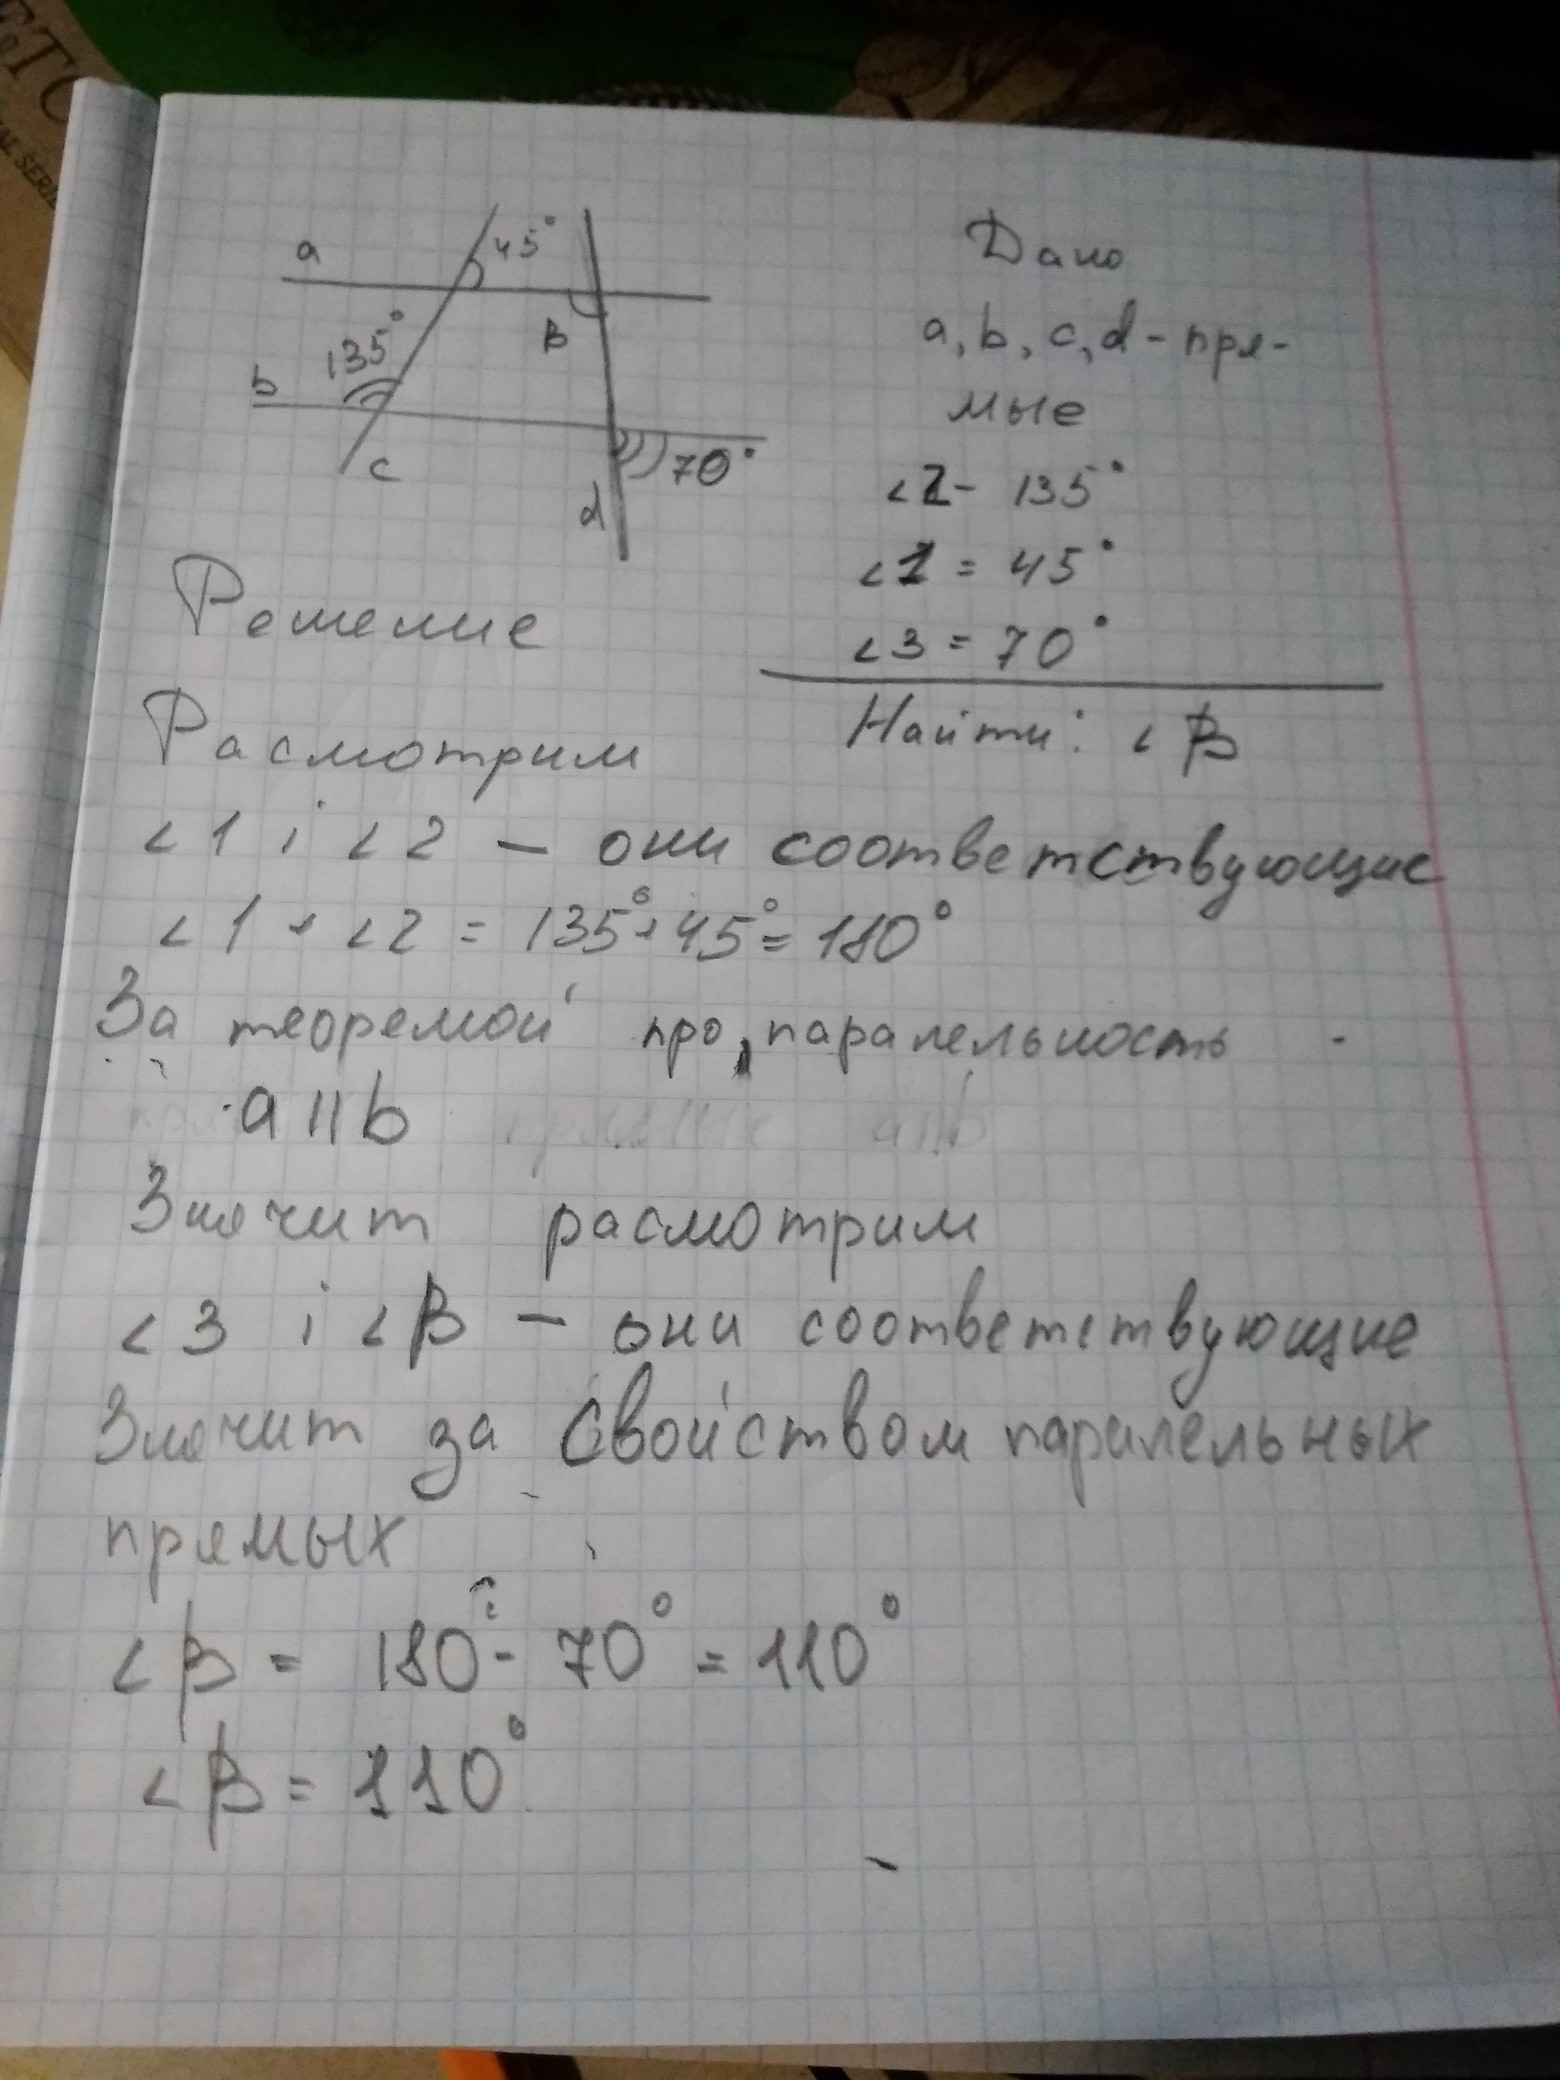 a
45°
135°
β
b
c
70°
d
Дано
a, b, c, d - пря-
мые
∠2 - 135°
∠1 = 45°
∠3 = 70°
Найти: ∠β
Решение
Расмотрим
∠1 і ∠2 — они соответствующие
∠1 + ∠2 = 135° + 45° = 180°
За теоремой про паралельность
a || b
Значит расмотрим
∠3 і ∠β — они соответствующие
Значит за свойством паралельных
прямых
∠β = 180° - 70° = 110°
∠β = 110°